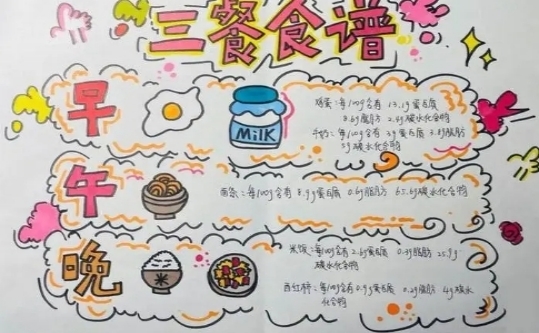 三餐食谱
早
MiLK
鸡蛋：每100g含有 13.1g蛋白质
8.6g脂肪 2.4g碳水化合物
牛奶：每100g含有 3g蛋白质 3.8g脂肪
5g碳水化合物
午
面条：每100g含有 8.9g蛋白质 0.6g脂肪 65.6g碳水化合物
晚
米
米饭：每100g含有2.6g蛋白质 0.3g脂肪 25.9g
碳水化合物
西红柿：每100g含有0.9g蛋白质 0.2g脂肪 4g碳水
化合物